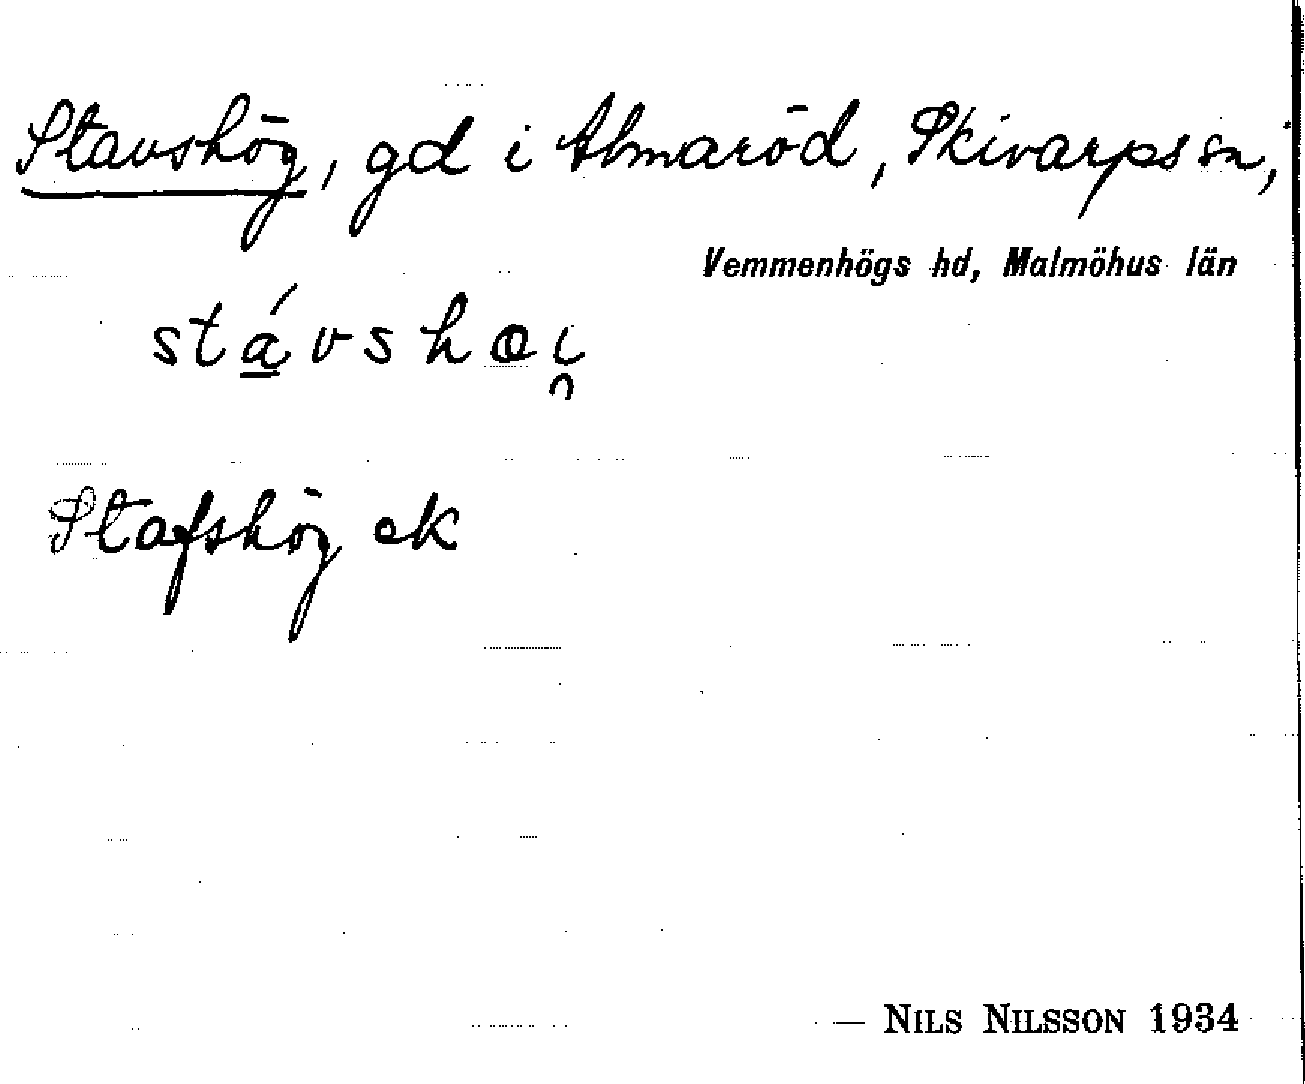 Stavshög, gd i Almaröd, Skivarps sn,
Vemmenhögs hd, Malmöhus län
stá̱vshꝏi̯
Stafshög ek
— NILS NILSSON 1934